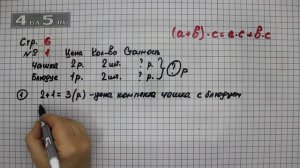 4DA5.RU
(a+b)·c=a·c+b·c
Стр. 6
№ 1 Цена Кол-во Стоимость
Чашка 2 р. 2 шт. ? р.
Блюдце 1 р. 2 шт. ? р. ? р
① 2+1=3 (р.) - цена комплекта чашка с блюдцем